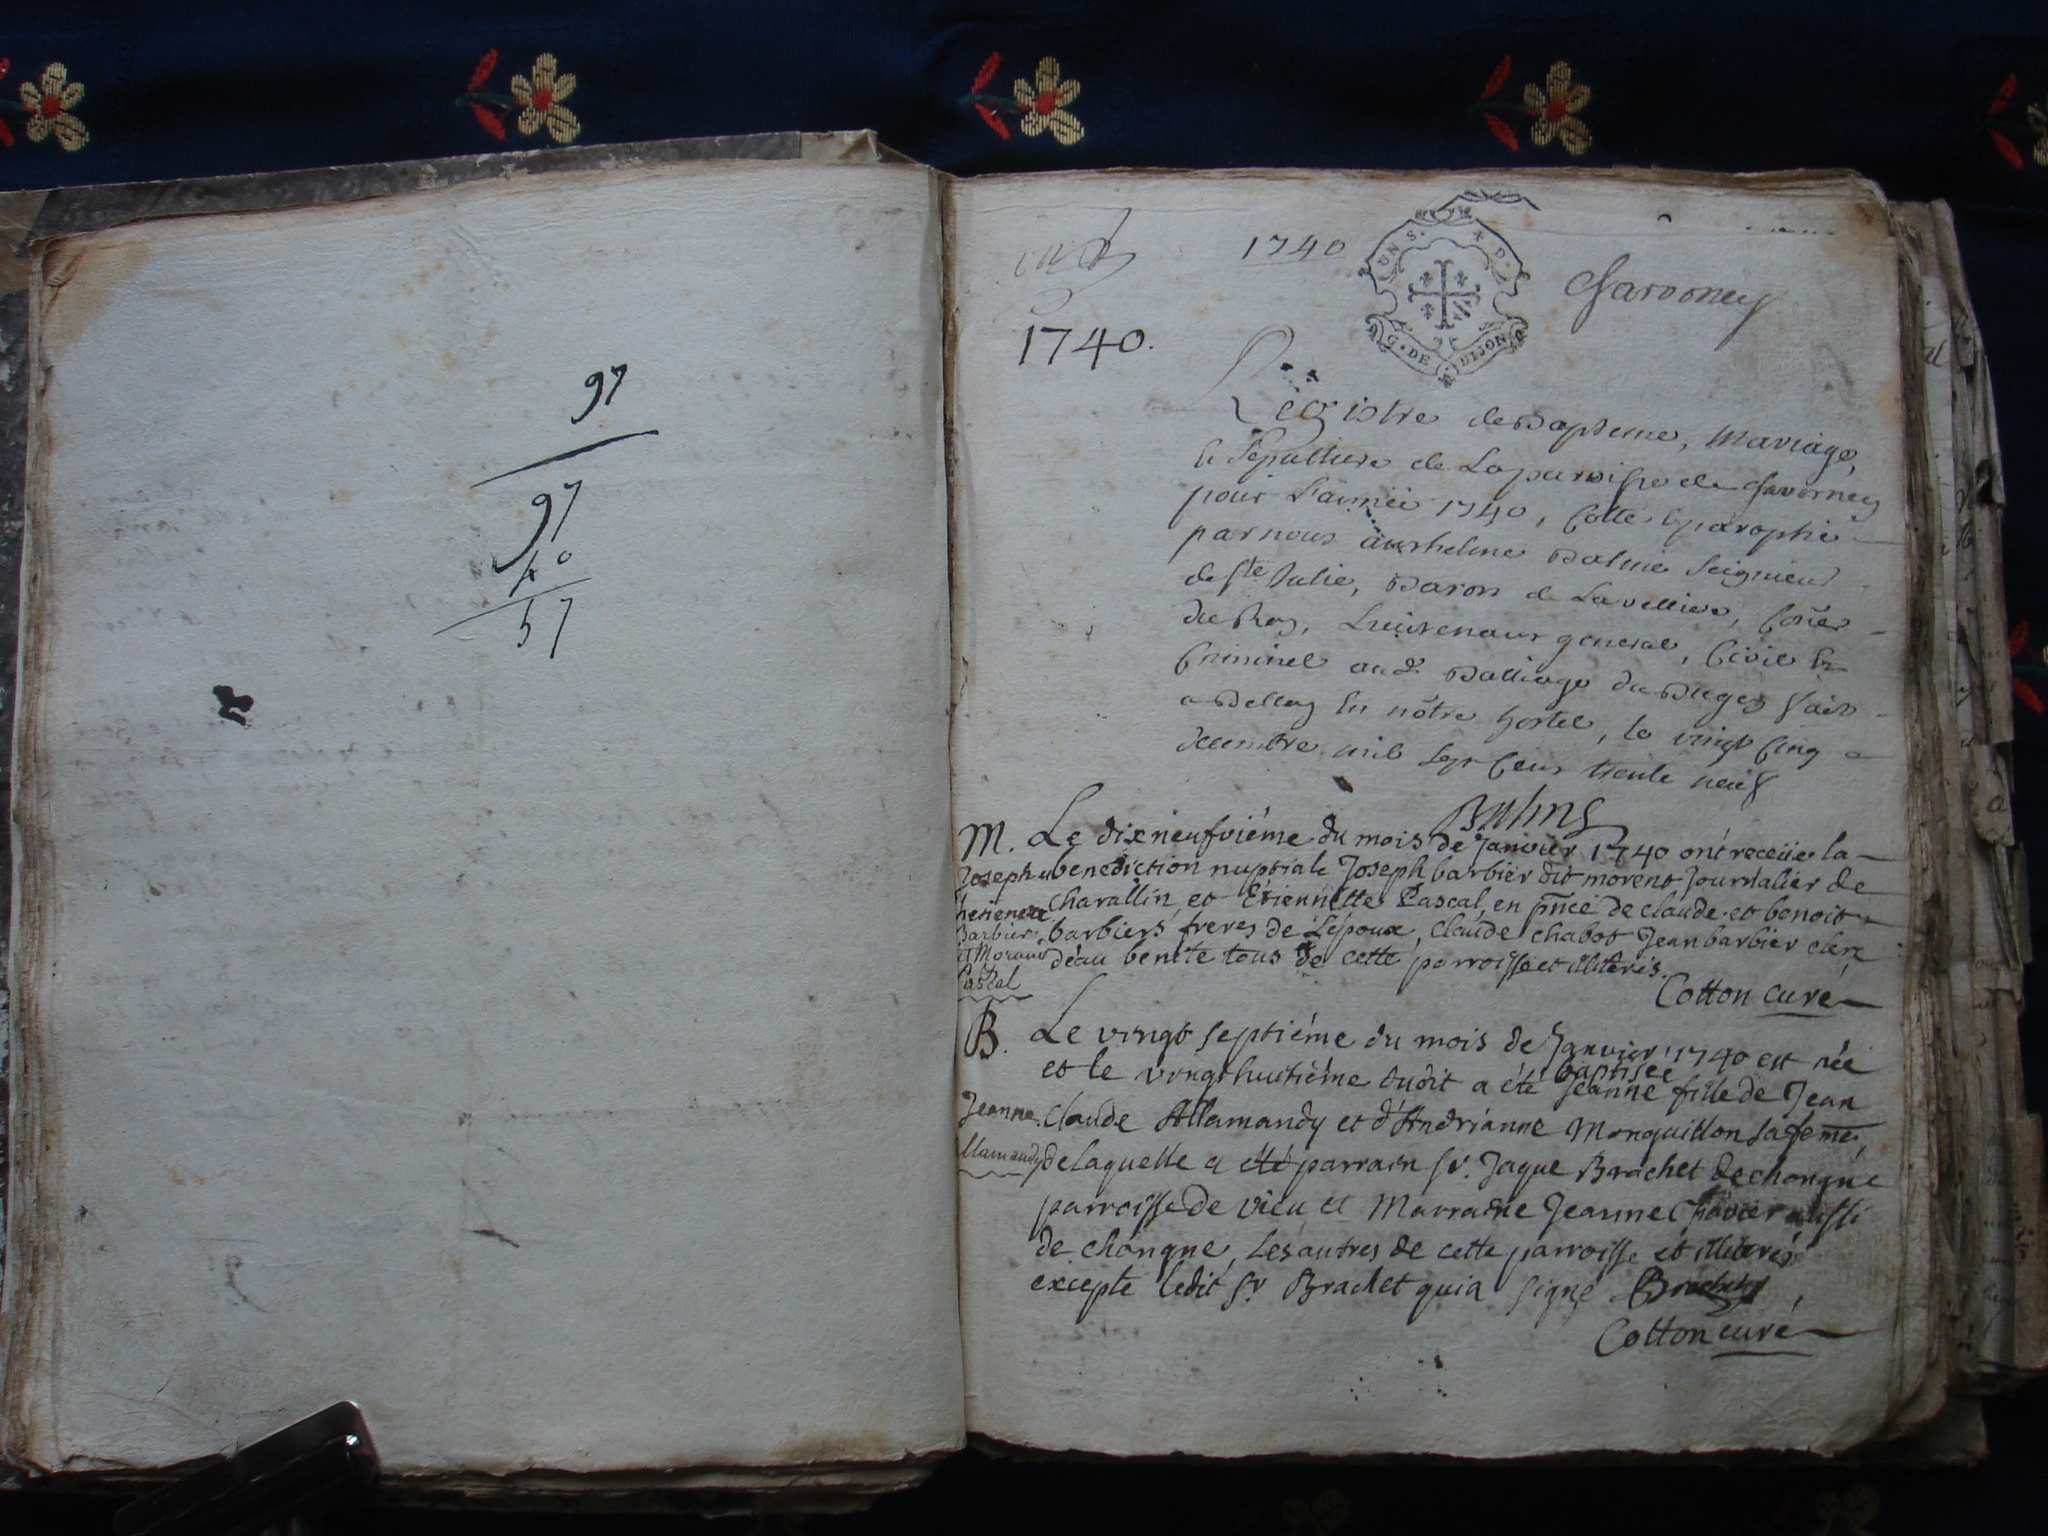 97
97
40
57
1740
UN S. * D.
G. DE DIJON
Charvorney
1740.
Registre de Bapteme, Mariage,
et Sepulture de La paroisse de Chavorney
pour L'année 1740, Cotté et parophé
par nous Anthelme Balme Seigneur
de Ste Julie, Baron de La velliere, Coner
du Roy, Lieutenant general, Civil et
Criminel au d. Balliage du Bugey fait
a Belley en nôtre hostel, le vingt Cinq
decembre mil Sept Cens trente neuf
M. Le dixneufviéme du mois de Janvier 1740 ont receüe la
benediction nuptiale Joseph barbier dit morent Journalier de
charallin, et Etiennette Pascal, en pnce de claude et benoit
barbiers freres de L'époux, Claude chabot Jean barbier clerc
d'eau benite tous de cette parroisse et illiterés.
Joseph
Barbier
Cotton curé
B. Le vingt septiéme du mois de Janvier 1740 est née
et le vingthuitiéme dudit a été baptisée Jeanne fille de Jean
Claude Allamandy et d'Andrianne Monguillon sa feme,
Jeanne
llamandy
de laquelle a été parrain Sr. Jaque Brachet de chongne
parroisse de vieu et Marraine Jeanne aussi
de chongne, Les autres de cette parroisse et illiterés
excepte ledit Sr Brachet qui a signé Brachet
Cotton curé